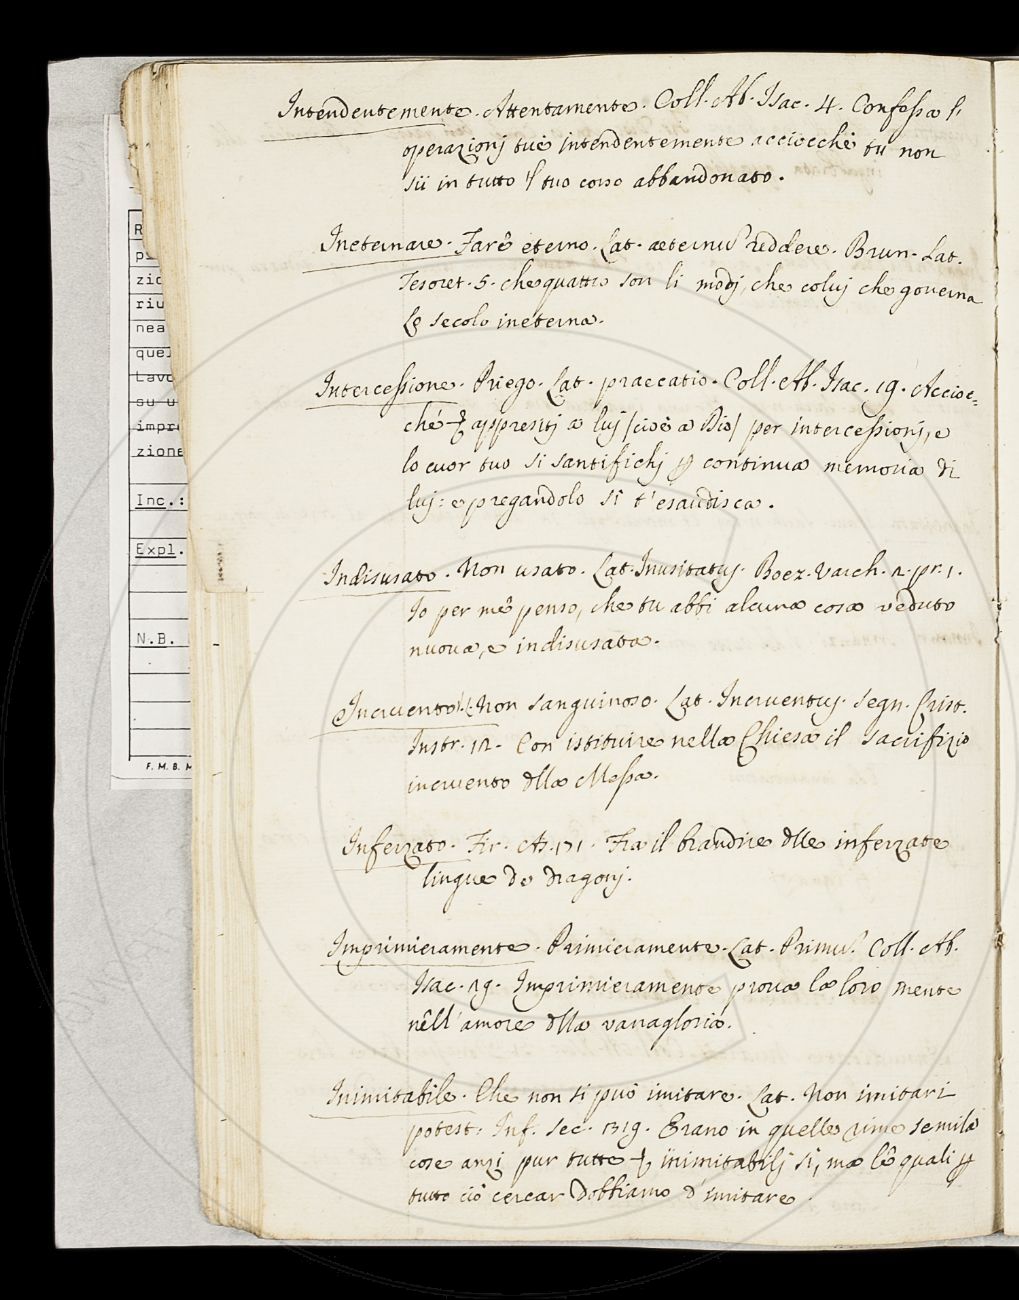 Intendentemente. Attentamente. Coll. Ab. Isac. 4. Confessa l'
operazionj tue intendentemente acciocchè tu non
sii in tutto tuo corso abbandonato.
Ineternare. Fare eterno. Lat. aeternu reddere. Brun. Lat.
Tesoret. 5. che quattro son li modj, che coluj che governa
Lo secolo ineterna.
Intercessione. Priego. Lat. praecatio. Coll. Ab. Isac. 19. Accioc=
ché appresitj a luj /cioè a Dio/ per intercessionj, e
lo cuor tuo si santifichj continua memoria di
luj: e pregandolo si t'esaudisca.
Indisusato. Non usato. Lat. Inusitatus. Boez. Varch. 2. pr. 1.
Io per me penso, che tu abbi alcuna cosa veduto
nuova, e indisusata.
Incruento. Non sanguinoso. Lat. Incruentus. Segn. Crist.
Instr. 12. Con istituire nella Chiesa il sacrifizio
incruento dlla Messa.
Inferzato. Fir. As. 171. Fra il brandire dlle inferzate
lingue de dragonj.
Imprimieramente. Primieramente. Lat. Primu. Coll. Ab.
Isac. 19. Imprimieramente prova la loro mente
nell'amore dlla vanagloria.
Inimitabile. Che non si può imitare. Lat. Non imitari
potest. Inf. Sec. 1319. Erano in quelle rime semila
cose anzi pur tutte inimitabilj sì, ma le quali
tutto ciò cercar dobbiamo d'imitare.
R
p
zio
riu
nea
que
Lavo
su u
impr
zione
Inc.:
Expl.
N.B.
F. M. B. M